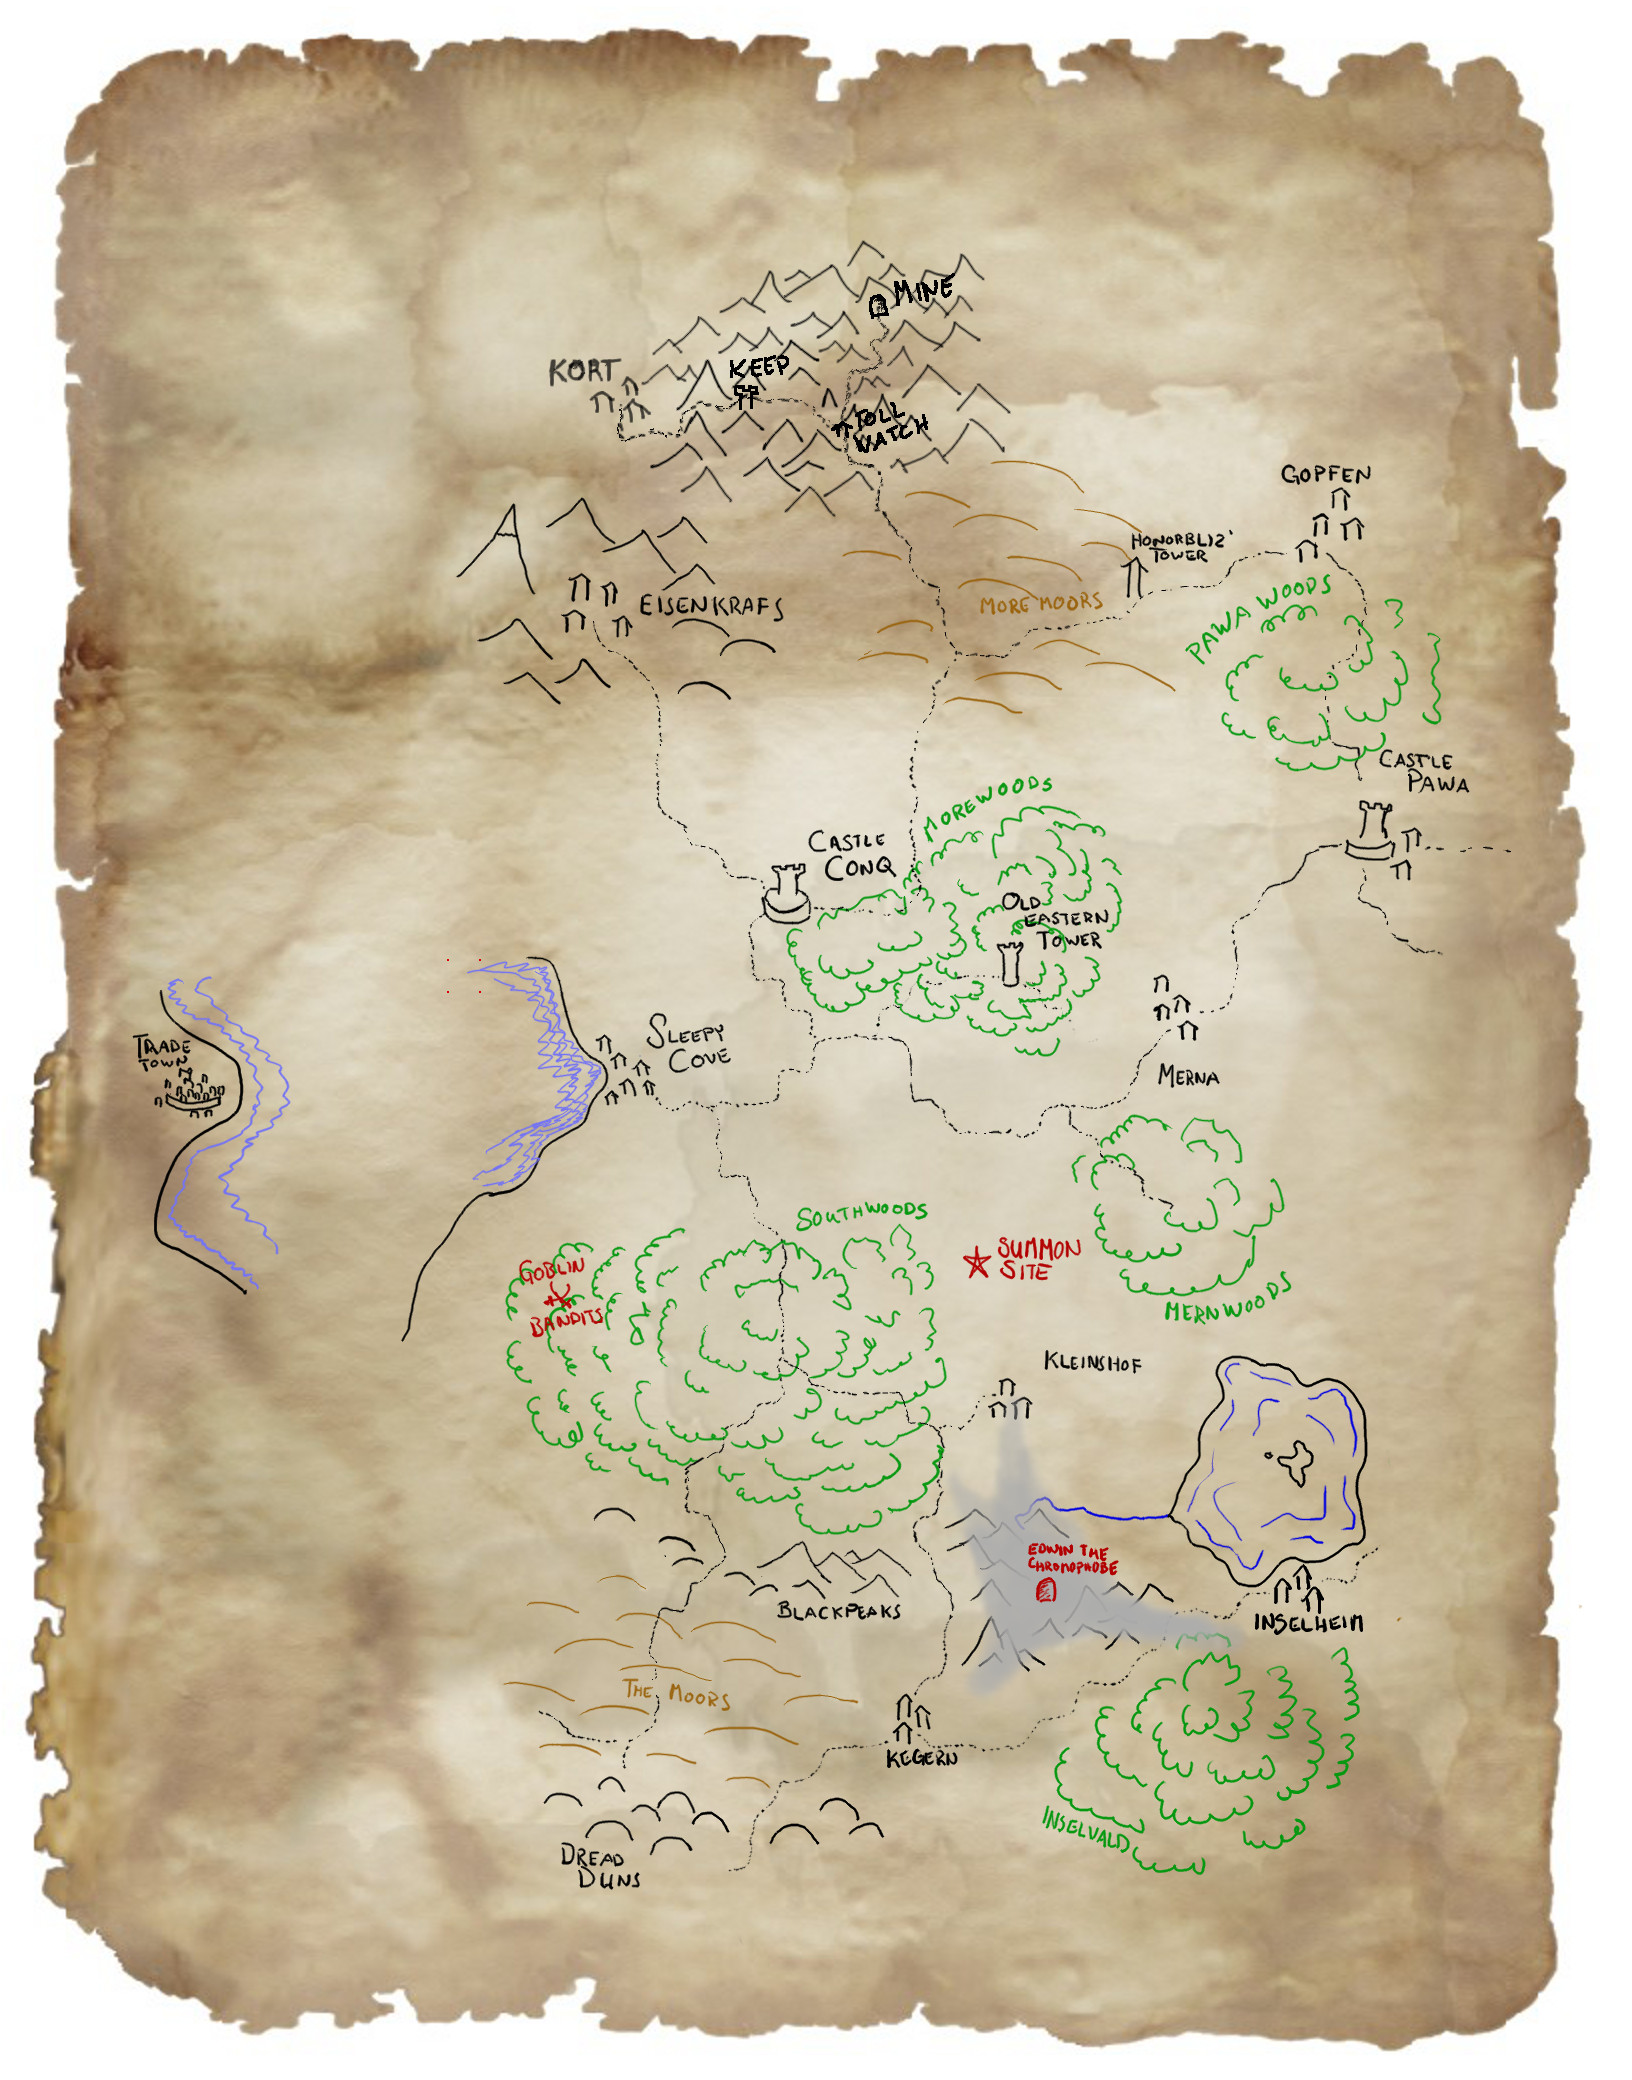 MINE
KORT
KEEP
TOLL
WATCH
GOPFEN
HONORBLIZ'
TOWER
EISENKRAFS
MORE MOORS
PAWA WOODS
CASTLE
PAWA
MOREWOODS
CASTLE
CONQ
OLD
EASTERN
TOWER
SLEEPY
COVE
TRADE
TOWN
MERNA
SOUTHWOODS
SUMMON
SITE
GOBLIN
BANDITS
MERNWOODS
KLEINSHOF
EDWIN THE
CHROMOPHOBE
BLACKPEAKS
INSELHEIM
THE MOORS
KEGERN
INSELVALD
DREAD
DUNS